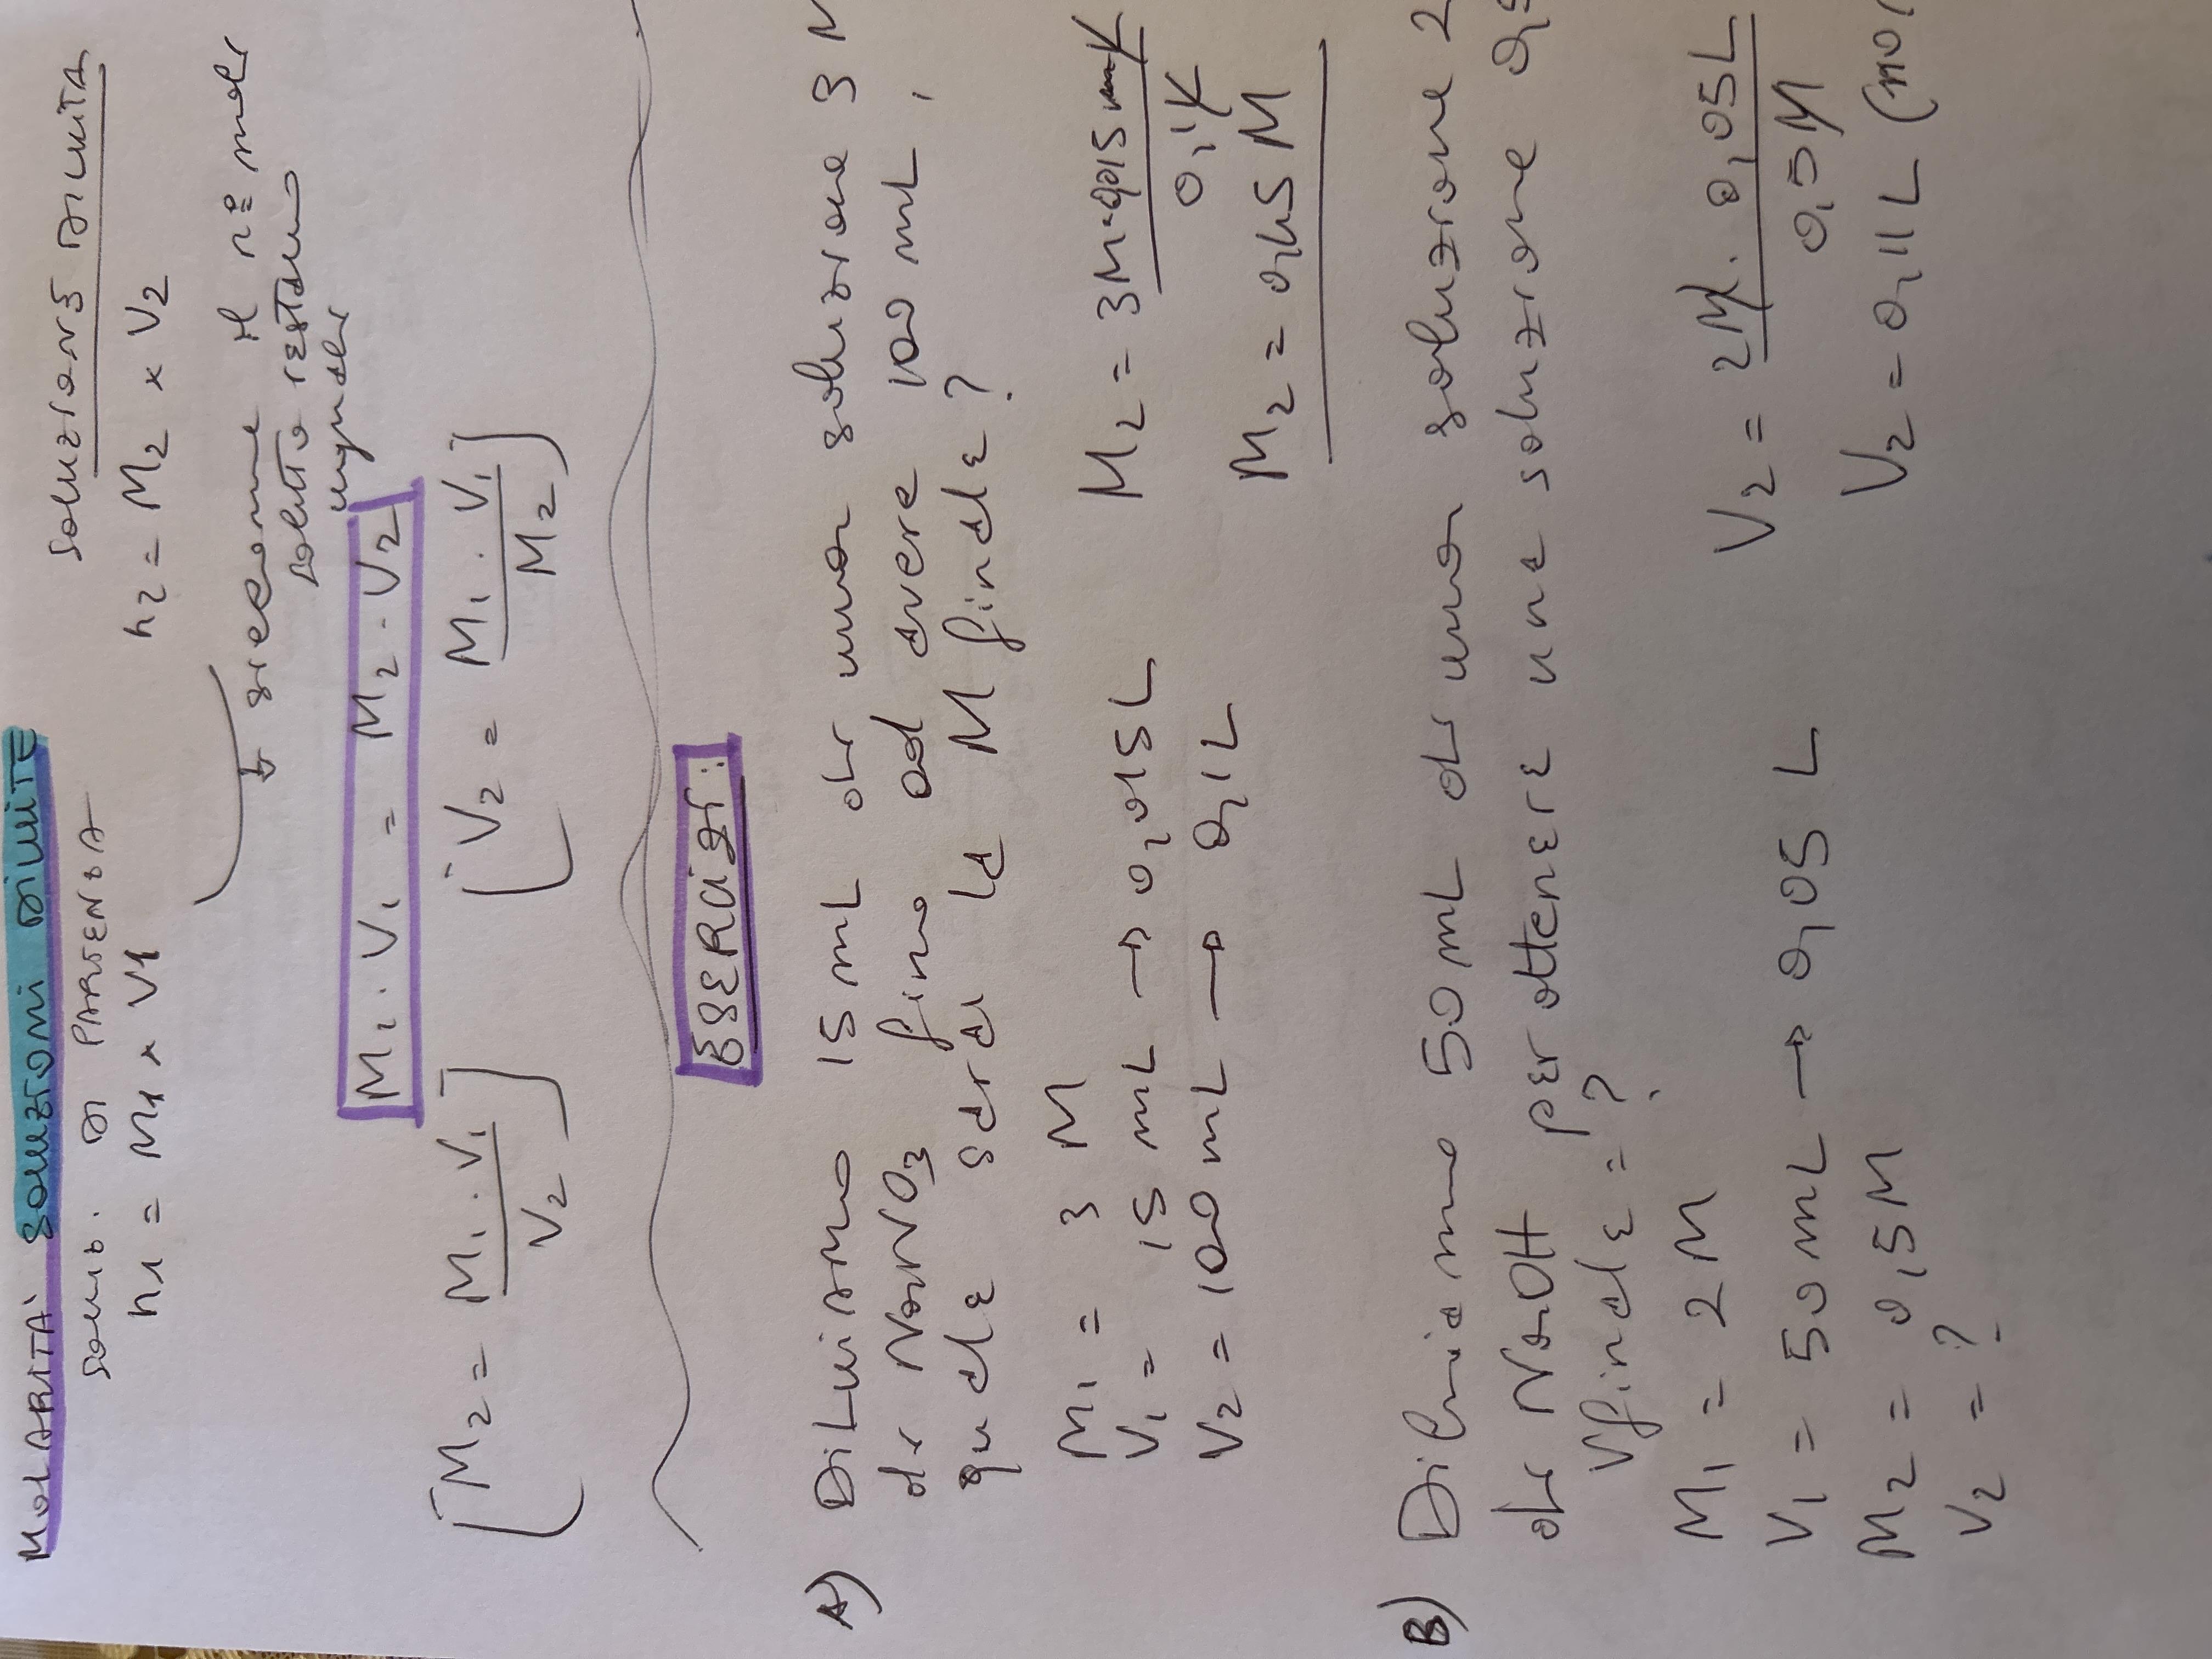 MOLARITA' SOLUZIONI DILUITE
SOLUZ. DI PARTENZA
SOLUZIONE DILUITA
n1 = M1 x V1
n2 = M2 x V2
siccome il n° moli
soluto restano
uguali
M1 · V1 = M2 · V2
[M2 = M1 · V1 / V2]
[V2 = M1 · V1 / M2]
ESERCIZI:
A) DiLuiAmo 15 mL di una soluzione 3 M
di NaNO3 fino ad avere 100 mL,
quale sarà la M finale?
M1 = 3 M
V1 = 15 mL → 0,015L
V2 = 100 mL → 0,1L
M2 = 3M·0,015 L / 0,1L
M2 = 0,45 M
B) Diluiamo 50 mL di una soluzione 2
di NaOH per ottenere una soluzione 0,5
Vfinale = ?
M1 = 2 M
V1 = 50 mL → 0,05 L
M2 = 0,5M
V2 = ?
V2 = 2M · 0,05L / 0,5M
V2 = 0,11L